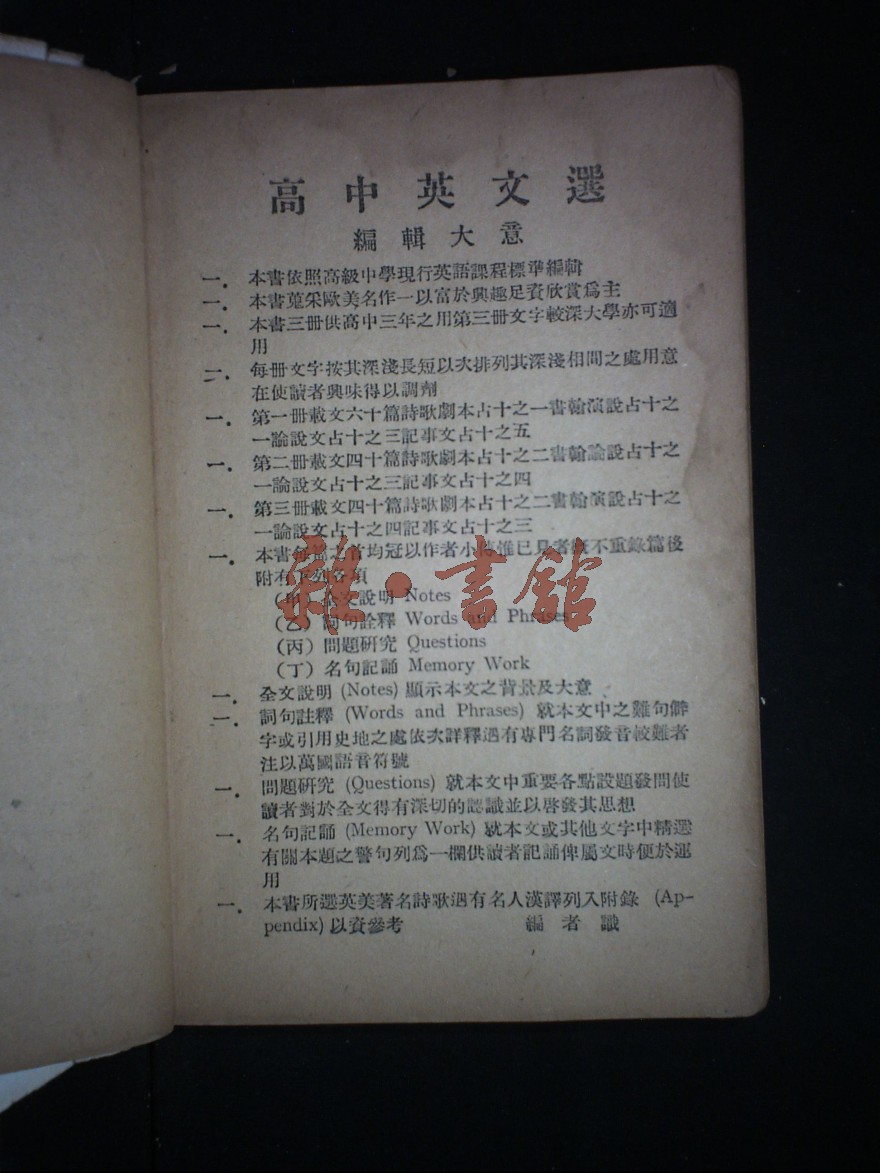 高中英文選
編輯大意
一．本書依照高級中學現行英語課程標準編輯
一．本書蒐采歐美名作一以富於興趣足資欣賞爲主
一．本書三册供高中三年之用第三册文字較深大學亦可適
用
一．每册文字按其深淺長短以次排列其深淺相間之處用意
在使讀者興味得以調劑
一．第一册載文六十篇詩歌劇本占十之一書翰演說占十之
一論說文占十之三記事文占十之五
一．第二册載文四十篇詩歌劇本占十之二書翰論說占十之
一論說文占十之三記事文占十之四
一．第三册載文四十篇詩歌劇本占十之二書翰演說占十之
一論說文占十之四記事文占十之三
一．本書每篇之首均冠以作者小傳惟已見者不重錄篇後
附有下列各項
（甲）全文說明 Notes
（乙）詞句詮釋 Words and Phrases
（丙）問題研究 Questions
（丁）名句記誦 Memory Work
一．全文說明 (Notes) 顯示本文之背景及大意
一．詞句註釋 (Words and Phrases) 就本文中之難句僻
字或引用史地之處依次詳釋遇有專門名詞發音較難者
注以萬國語音符號
一．問題研究 (Questions) 就本文中重要各點設題發問使
讀者對於全文得有深切的認識並以啓發其思想
一．名句記誦 (Memory Work) 就本文或其他文字中精選
有關本題之警句列爲一欄供讀者記誦俾屬文時便於運
用
一．本書所選英美著名詩歌遇有名人漢譯列入附錄 (Ap-
pendix) 以資參考 編者識
雜·書館